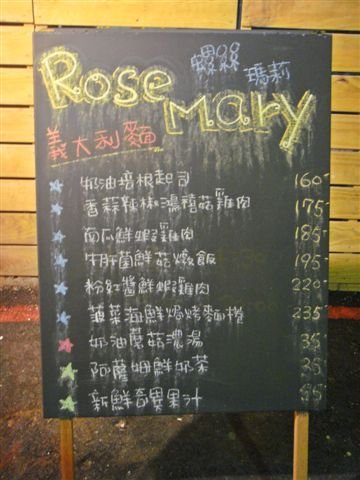 Rose Mary
螺絲瑪莉
義大利麵
奶油培根起司 160
香蒜辣椒鴻禧菇雞肉 175
南瓜鮮蝦雞肉 185
牛肝菌鮮菇燉飯 195
粉紅醬鮮蝦雞肉 220
菠菜海鮮焗烤麵捲 235
奶油蘑菇濃湯 35
阿薩姆鮮奶茶 35
新鮮奇異果汁